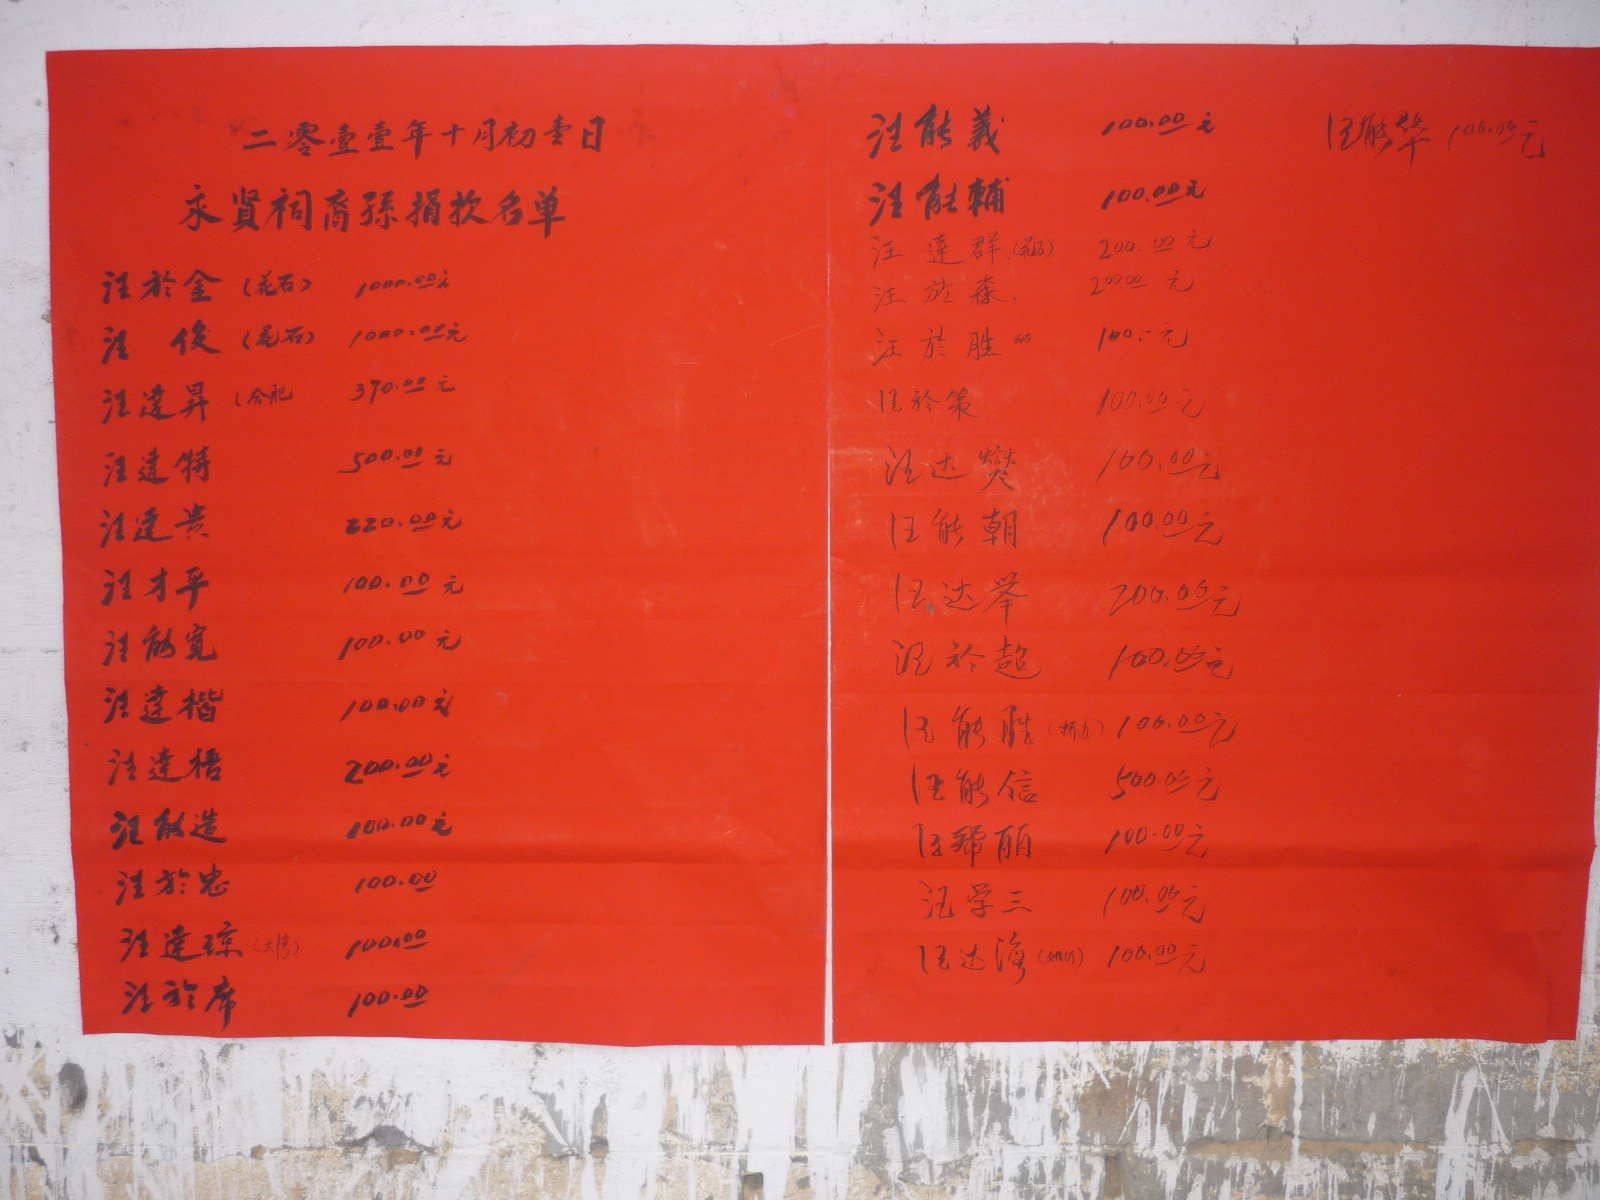 二零壹壹年十月初壹日
永贤祠裔孫捐款名单
汪於金（花石） 1000.00元
汪 俊（花石） 1000.00元
汪達昇（合肥 370.00元
汪達特 500.00元
汪達贵 220.00元
汪才平 100.00元
汪能寬 100.00元
汪達楷 100.00元
汪達梧 200.00元
汪能造 100.00元
汪於忠 100.00
汪達琼（大湾） 100.00
汪於席 100.00
汪能義 100.00元
汪能輔 100.00元
汪達群 200.00元
汪於森、 200.00元
汪於胜 100.元
汪於策 100.00元
汪达爕 100.00元
汪能朝 100.00元
汪达举 200.00元
汪於超 100.00元
汪能胜（桥边） 100.00元
汪能信 500.00元
汪 丽 100.00元
汪学三 100.00元
汪达海 100.00元
汪能华 100.00元